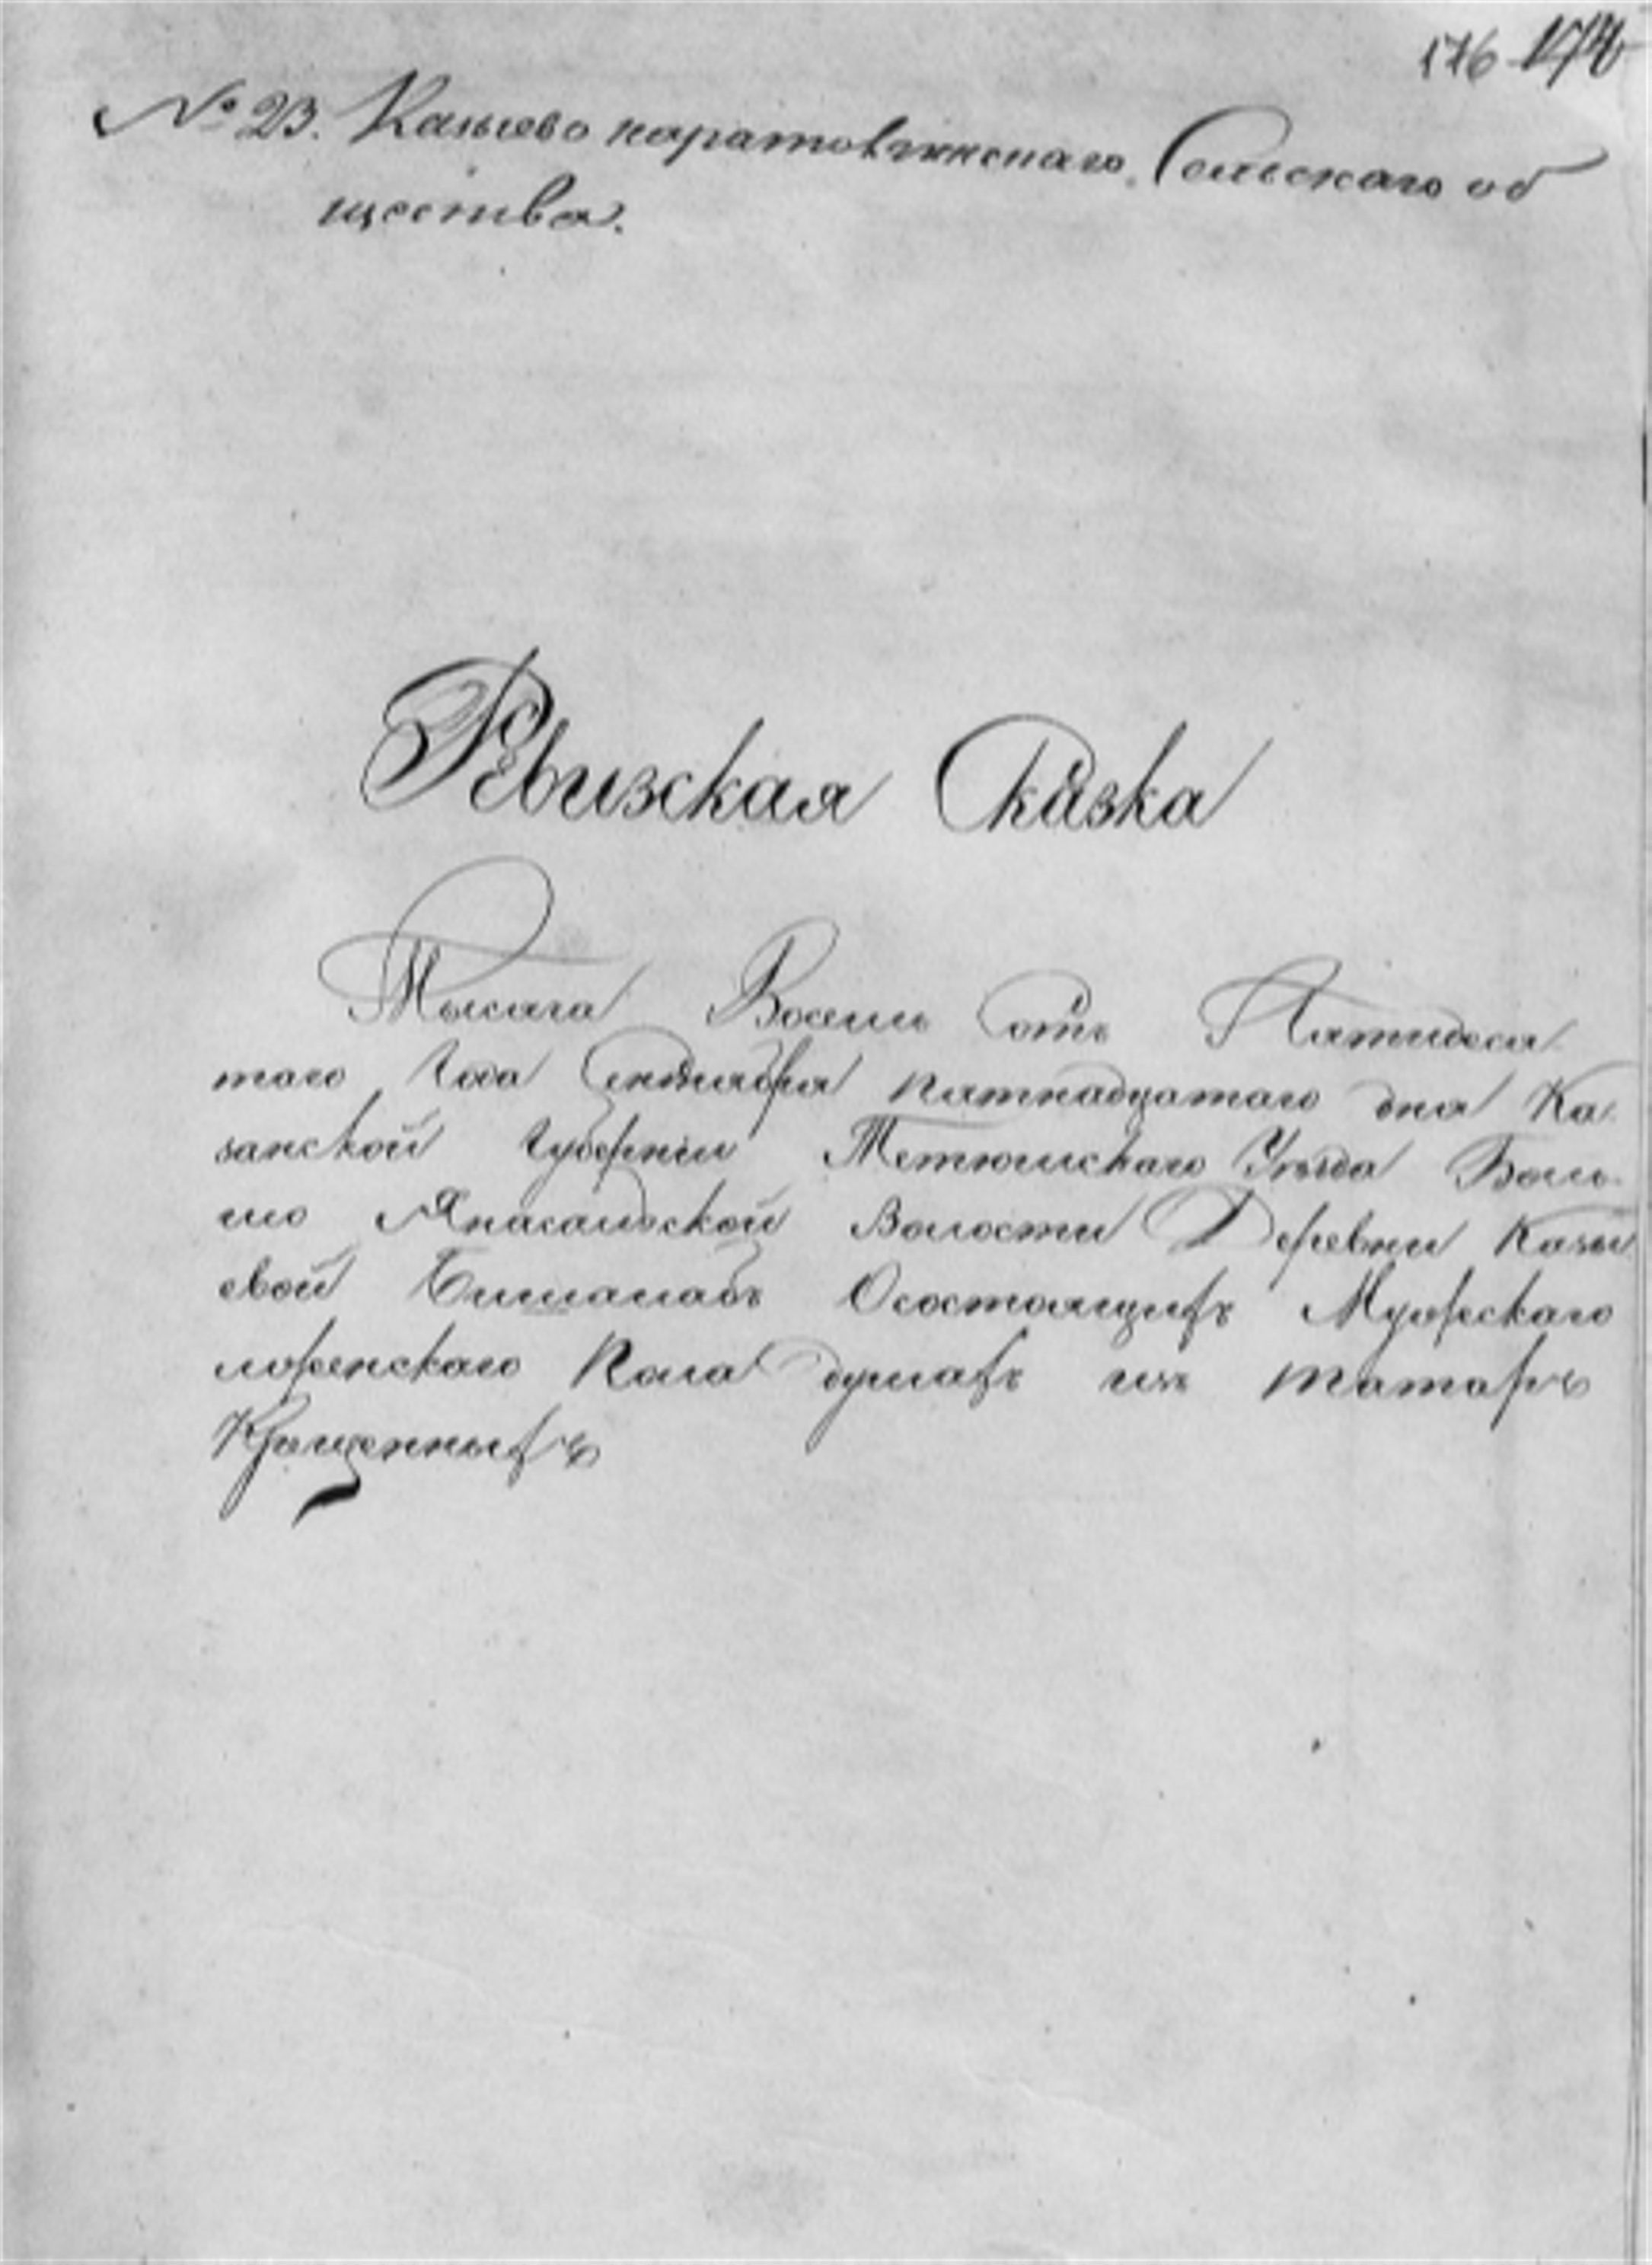 176 174
№ 23. Казыево каратовгинскаго Сельскаго об
щества.
Ревизская Сказка
Тысяча Восемь Сотъ Пятидеся
таго Года Сентября пятнадцатаго дня Ка
занской Губерніи Тетюшскаго Уѣзда Боль
ше Яносальской Волости Деревни Казы
евой Осостоящихъ Мужескаго
душахъ изъ татаръ
Крещенныхъ